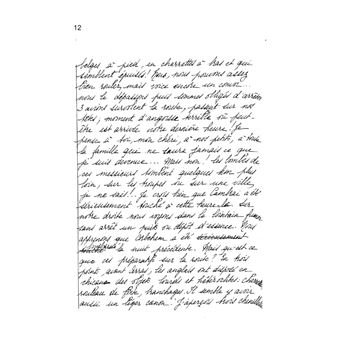 12
belges à pied, en charrettes à bras et qui
semblent épuisés! Nous, nous pouvons assez
bien rouler, mais voici encore un convoi...
nous le dépassons puis sommes obligés d'arrêter
3 avions survolent la route, passent sur nos
têtes, moment d'angoisse terrible où peut-
être est arrivée notre dernière heure! Je
pense à toi, mon chéri, à nos petits, à toute
la famille qui ne saura jamais ce que
je suis devenue... Mais non! les bombes de
ces messieurs tombent quelques kms plus
loin, sur les troupes ou sur une ville,
je ne sais! Je crois bien que Cambrai a été
sérieusement touché à cette heure-là. Sur
notre droite nous voyons dans le lointain fumer
sans arrêt un puits ou dépôt d'essence. Nous
apprenons que la nuit précédente. Mais qu'est-ce
que ces préparatifs sur la route? En trois
points, avant Arras, les anglais ont disposé en
chicanes des objets lourds et hétéroclites:
rouleau de branchages. Il semble y avoir
aussi un léger canon. J'aperçois trois chenilles